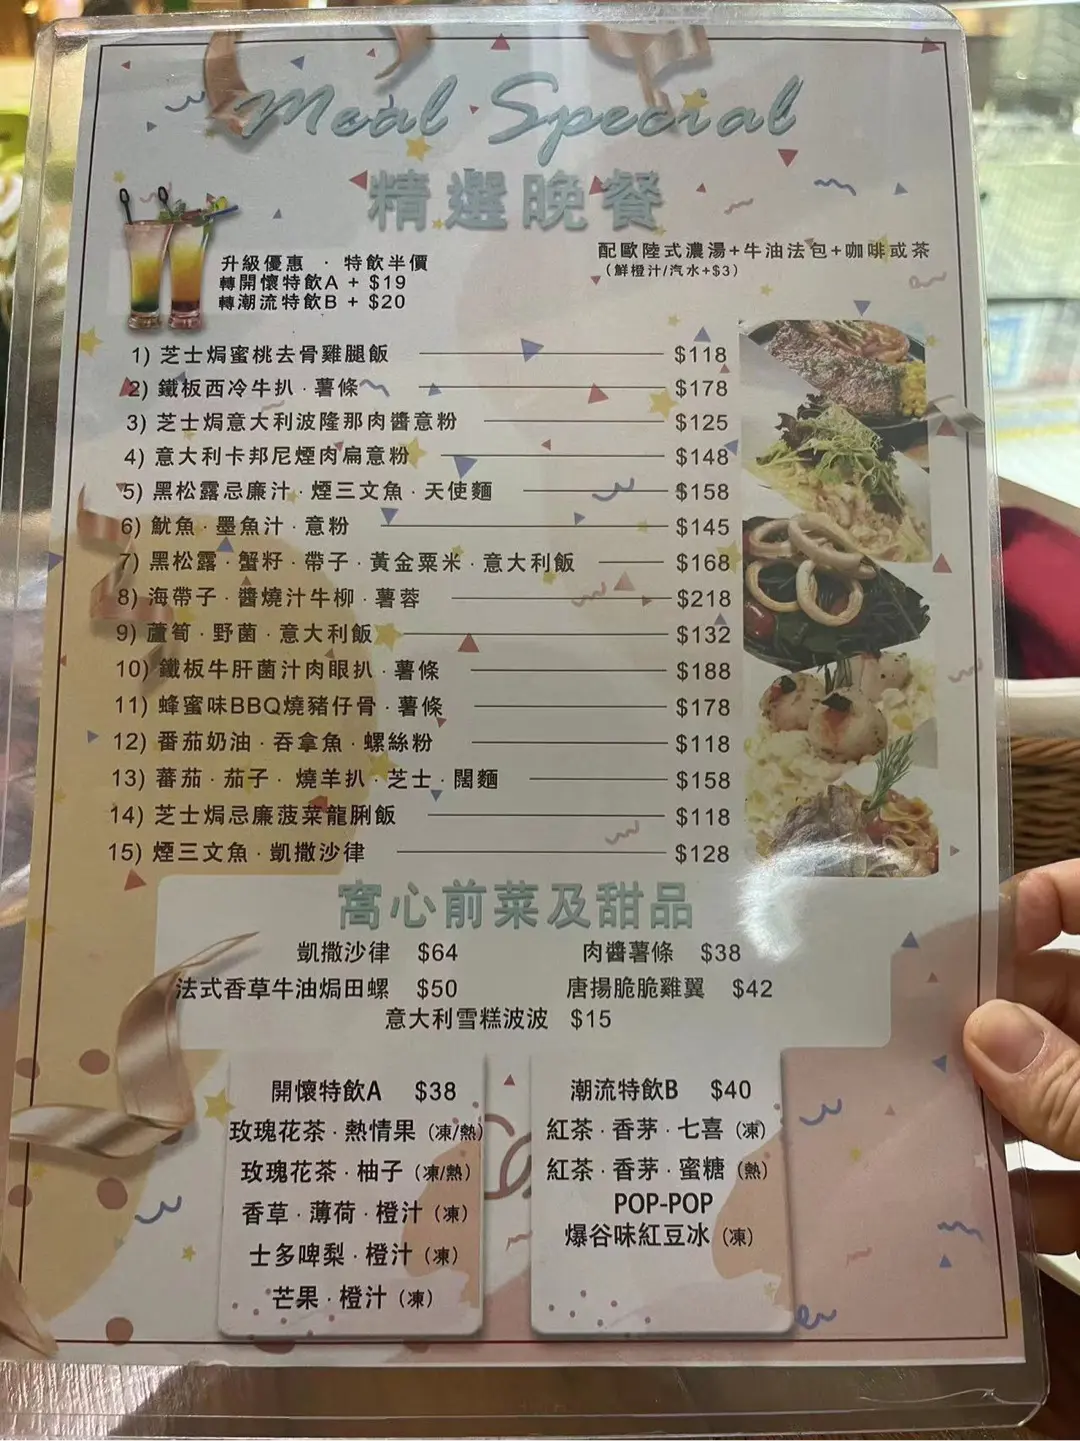 Meal Special
精選晚餐
升級優惠 · 特飲半價
轉開懷特飲A + $19
轉潮流特飲B + $20
配歐陸式濃湯+牛油法包+咖啡或茶
（鮮橙汁/汽水+$3）
1) 芝士焗蜜桃去骨雞腿飯 $118
2) 鐵板西冷牛扒 · 薯條 $178
3) 芝士焗意大利波隆那肉醬意粉 $125
4) 意大利卡邦尼煙肉扁意粉 $148
5) 黑松露忌廉汁 · 煙三文魚 · 天使麵 $158
6) 魷魚 · 墨魚汁 · 意粉 $145
7) 黑松露 · 蟹籽 · 帶子 · 黃金粟米 · 意大利飯 $168
8) 海帶子 · 醬燒汁牛柳 · 薯蓉 $218
9) 蘆筍 · 野菌 · 意大利飯 $132
10) 鐵板牛肝菌汁肉眼扒 · 薯條 $188
11) 蜂蜜味BBQ燒豬仔骨 · 薯條 $178
12) 番茄奶油 · 吞拿魚 · 螺絲粉 $118
13) 蕃茄 · 茄子 · 燒羊扒 · 芝士 · 闊麵 $158
14) 芝士焗忌廉菠菜龍脷飯 $118
15) 煙三文魚 · 凱撒沙律 $128
窩心前菜及甜品
凱撒沙律 $64
肉醬薯條 $38
法式香草牛油焗田螺 $50
唐揚脆脆雞翼 $42
意大利雪糕波波 $15
開懷特飲A $38
玫瑰花茶 · 熱情果（凍/熱）
玫瑰花茶 · 柚子（凍/熱）
香草 · 薄荷 · 橙汁（凍）
士多啤梨 · 橙汁（凍）
芒果 · 橙汁（凍）
潮流特飲B $40
紅茶 · 香茅 · 七喜（凍）
紅茶 · 香茅 · 蜜糖（熱）
POP-POP
爆谷味紅豆冰（凍）